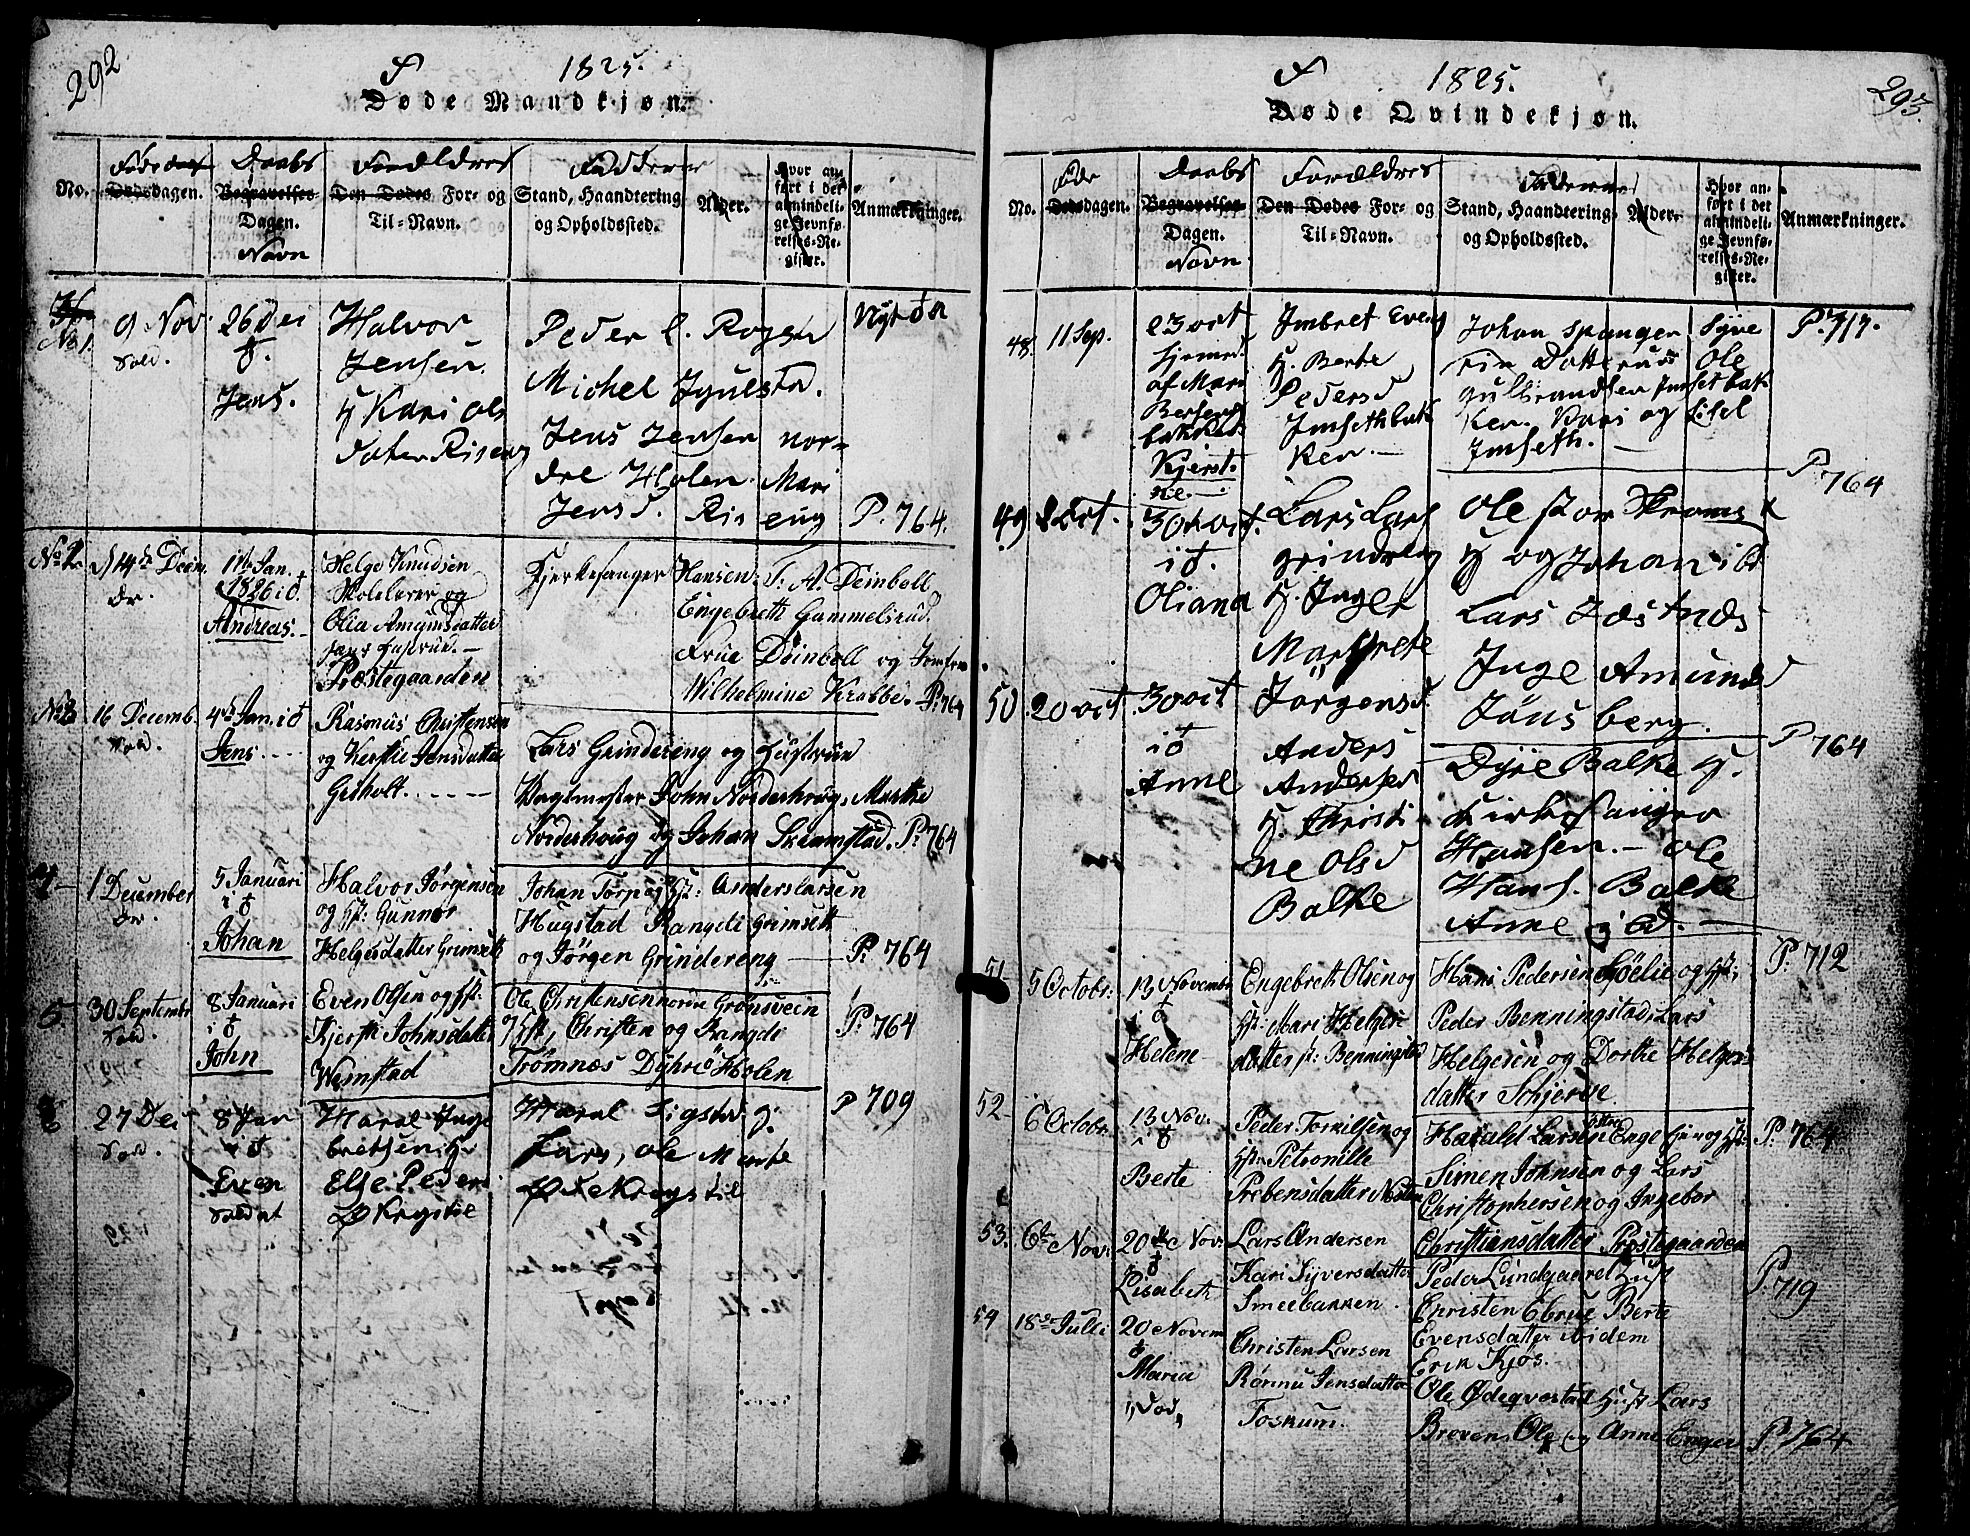 292
F 1825.
Døde Mandkjøn.
No.
Fødedags
Dødsdagen.
Daabs
Begravelses
Dagen.
Navn
Forældres
Den Dødes For- og
Til-Navn.
Faddernes
Stand, Haandtering
og Opholdssted.
Alder.
Hvor an-
ført i det
almindeli-
ge Jevnfø-
relses-Re-
gister.
Anmærkninger.
No 1.
9 Nov.
26 Dei
Jens.
Halvor
Jensen
Kari Ols
dater
Peder
Michel
Jens Jensen nor-
dre Holen Mari
Jensd.
Nyt
P. 764.
No 2.
14de Decm.
1te Jan.
1826 i
Andreas.
Helge Knudsen
Skolelærer og
Olia Amundsdatter
Præstegaarden
Kjerkesanger Hansen T. A. Deinboll
Engebreth Gammelsrud.
Frue Deinboll og Jomfru
Wilhelmine Krabbe. P: 764
No 3
16 Decemb.
4de Jan. i
Jens
Rasmus Christensen
og Kerstie Jensdatter
Gisholt.
Lars Grindereng og
Vagtmester John Norderhoug, Marthe
Norderhoug og Johan Skramstad. P: 764
4
1 December
5 Januari
Johan
Halvor Jørgensen
og Hst: Gunnor
Helgesdatter Grimseth
Johan Torp og Hst: Anders Larsen
Hugstad Rangdi Grimseth
og Jørgen Grindereng
P: 764
5.
30 Septembr
8 Januari
John
Even Olsen og Hst:
Kjersti Johnsdatter
Wemstad
Ole Christensen nordre Grønsveen
Hst, Christen og Rangdi
Trømnæs Dyhre Holen
P: 764
6
27 Dei
8 Jan
Even
Soldat
Haral Inge
bretsen
Else Peders
Haral Sigstad
Lars, Ole Marte
P 709
293.
F 1825.
Døde Qvindekjøn.
No.
Føde
Dødsdagen.
Daabs
Begravelses
Dagen.
Navn
Forældres
Den Dødes For- og
Til-Navn.
Faddernes
Stand, Haandtering
og Opholdssted.
Alder.
Hvor an-
ført i det
almindeli-
ge Jevnfø-
relses-Re-
gister.
Anmærkninger.
48.
11 Sep.
23 oct
hjemed.
af Mari
Kjerst-
ne.
Imbret Evens
H. Berte
Pedersd
Imsethbak
ken.
Johan Spangen
Syve
Ole
gulbrandsen Imsetbak
ken. Kari og Lisel
Imseth.
P. 717.
49
30 oct.
i
Oliana
Lars Lars
grindreng
H. Inger
Margrete
Jørgensd.
Ole Stor Skrams
H og Johan
Lars
Inge Amunds
Jønsberg.
P 764
50
20 oct
30 oct
i
Anne
Anders
Andersen
H. Christi
ne Olsd
Balke
Dyre Balke H.
Kirkesanger
Hansen. - Ole
Hans. Balke
Anne
P 764
51
5 Octobr:
13 Novembr
Helene
Engebreth Olsen og
Hst: Mari Helges
datter Benningstad
Hans Pedersen Söelie og Hst;
Peder Benningstad; Lars
Helgesen og Dorthe Helges
datter Schjerve.
P: 712
52
6 Octobr
13 Nov.
Berte
Peder Tomilsen og
Hst: Petronille
Prebensdatter
Harald Larsen Enge og Hst:
Simen Johnsen og Lars
Christophersen og Ingebor
Christiansdatter Præstegaarden
P: 764
53.
6te Nov:
20de Nov:
Lisabeth
Lars Andersen
Kari Syversdatter
Smeebakken.
Peder Lundgaard Hust
Christen Ebrue Berte
Evensdatter Aidem
Erik Kjøs.
P: 719
54
18de Julli
20 Novem
Maria
"Død"
Christen Larsen
Rønnu Jensdatter
Toskum.
Ole Ødeqvestad Hust Lars
Broven, Ole og Anne Enger
P: 764